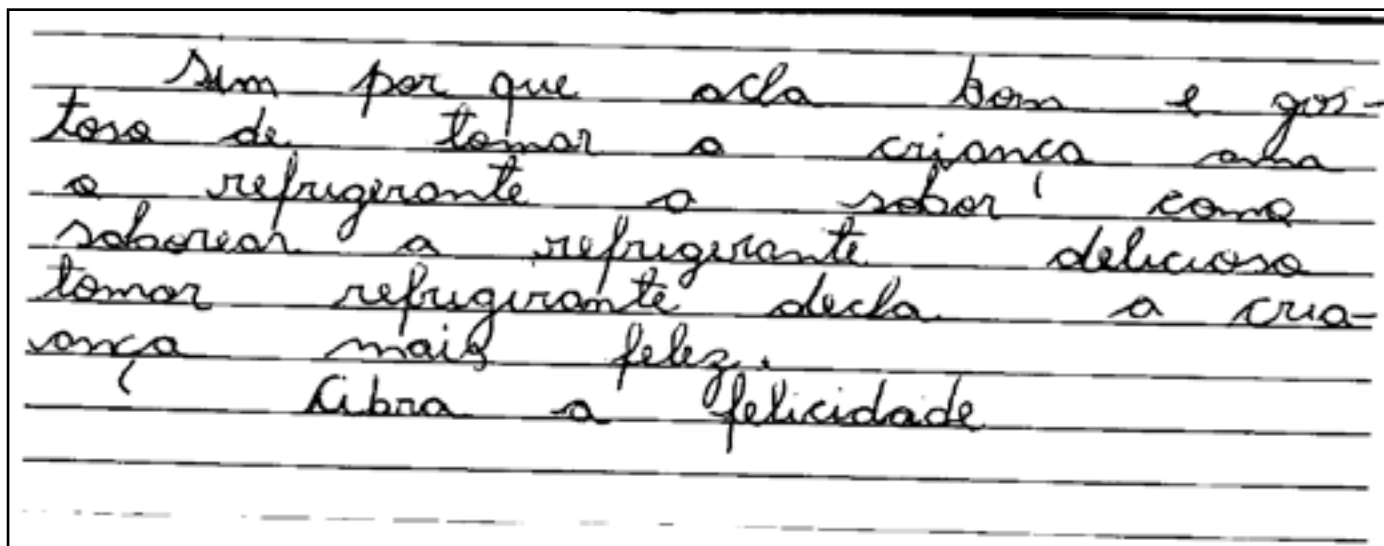 Sim por que acla bom e gos-
toso de tomar a criança ama
o refrigerante o sabor como
saborear a refrigerante delicioso
tomar refrigirante decla a cria-
ança mais felez.
Libra a felicidade